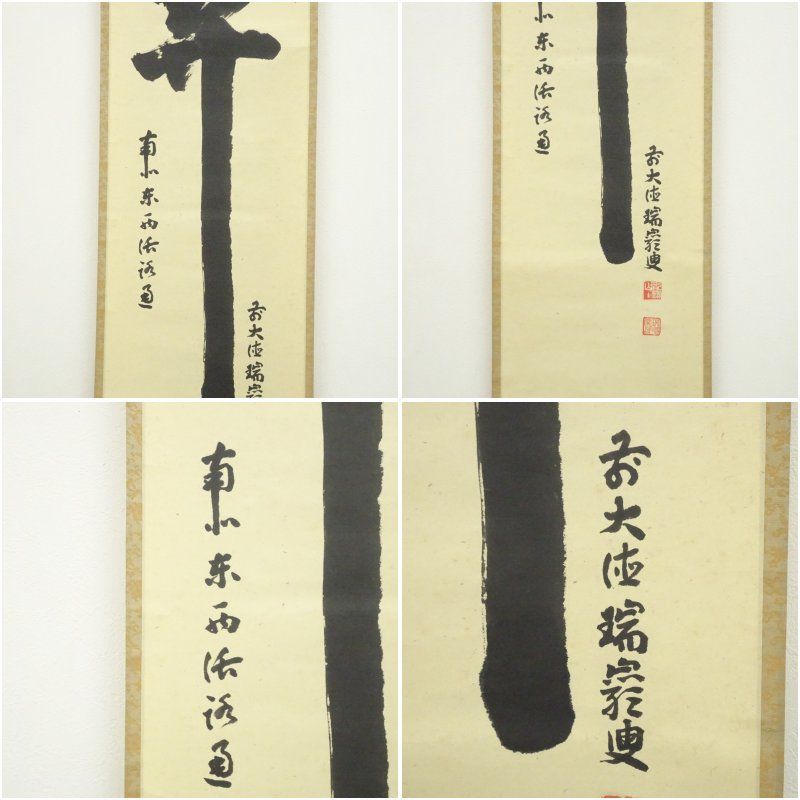 南北東西活路通
前大徳瑞巌叟
北東西活路通
前大徳瑞巌叟
南北東西活路通
前大徳瑞巌叟